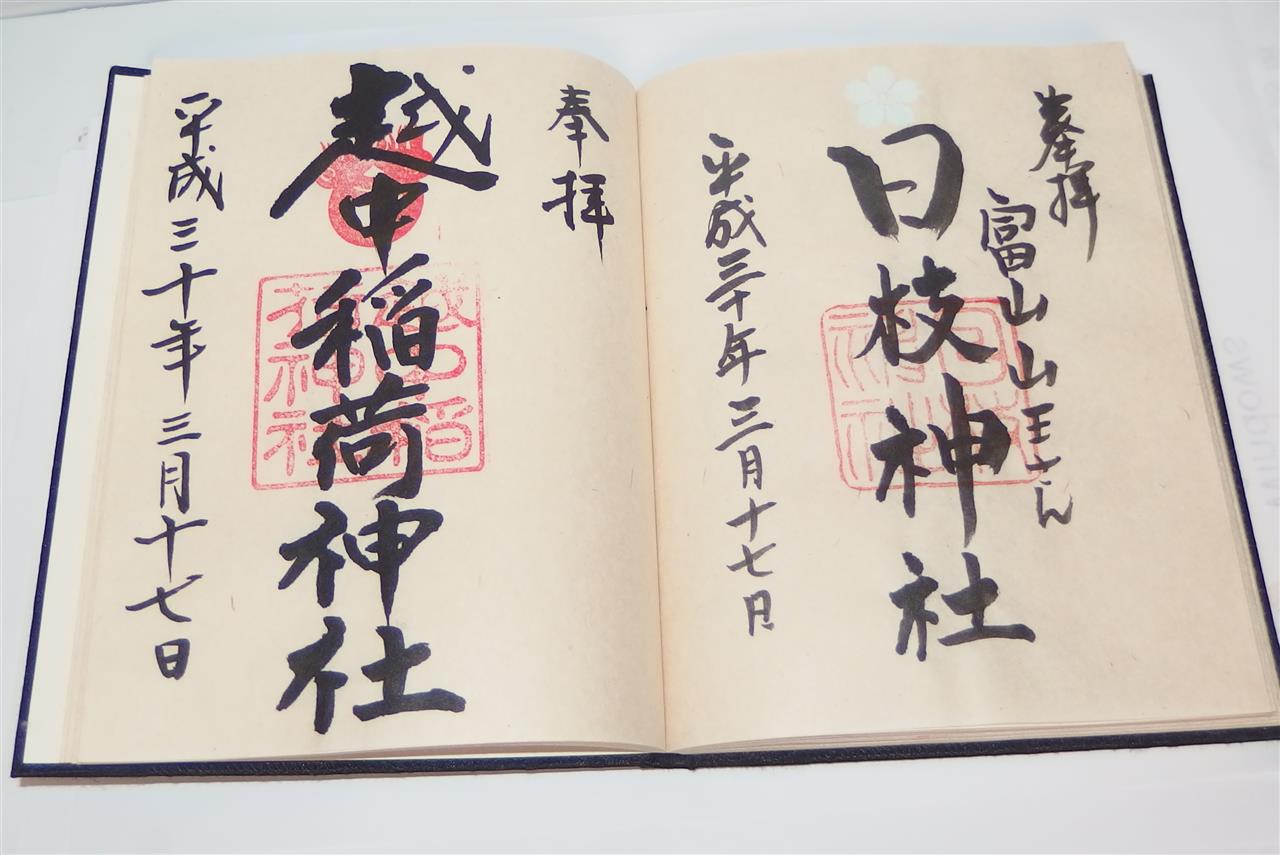 奉拝
富山山王さん
日枝神社
平成三十年三月十七日
奉拝
越中稲荷神社
平成三十年三月十七日